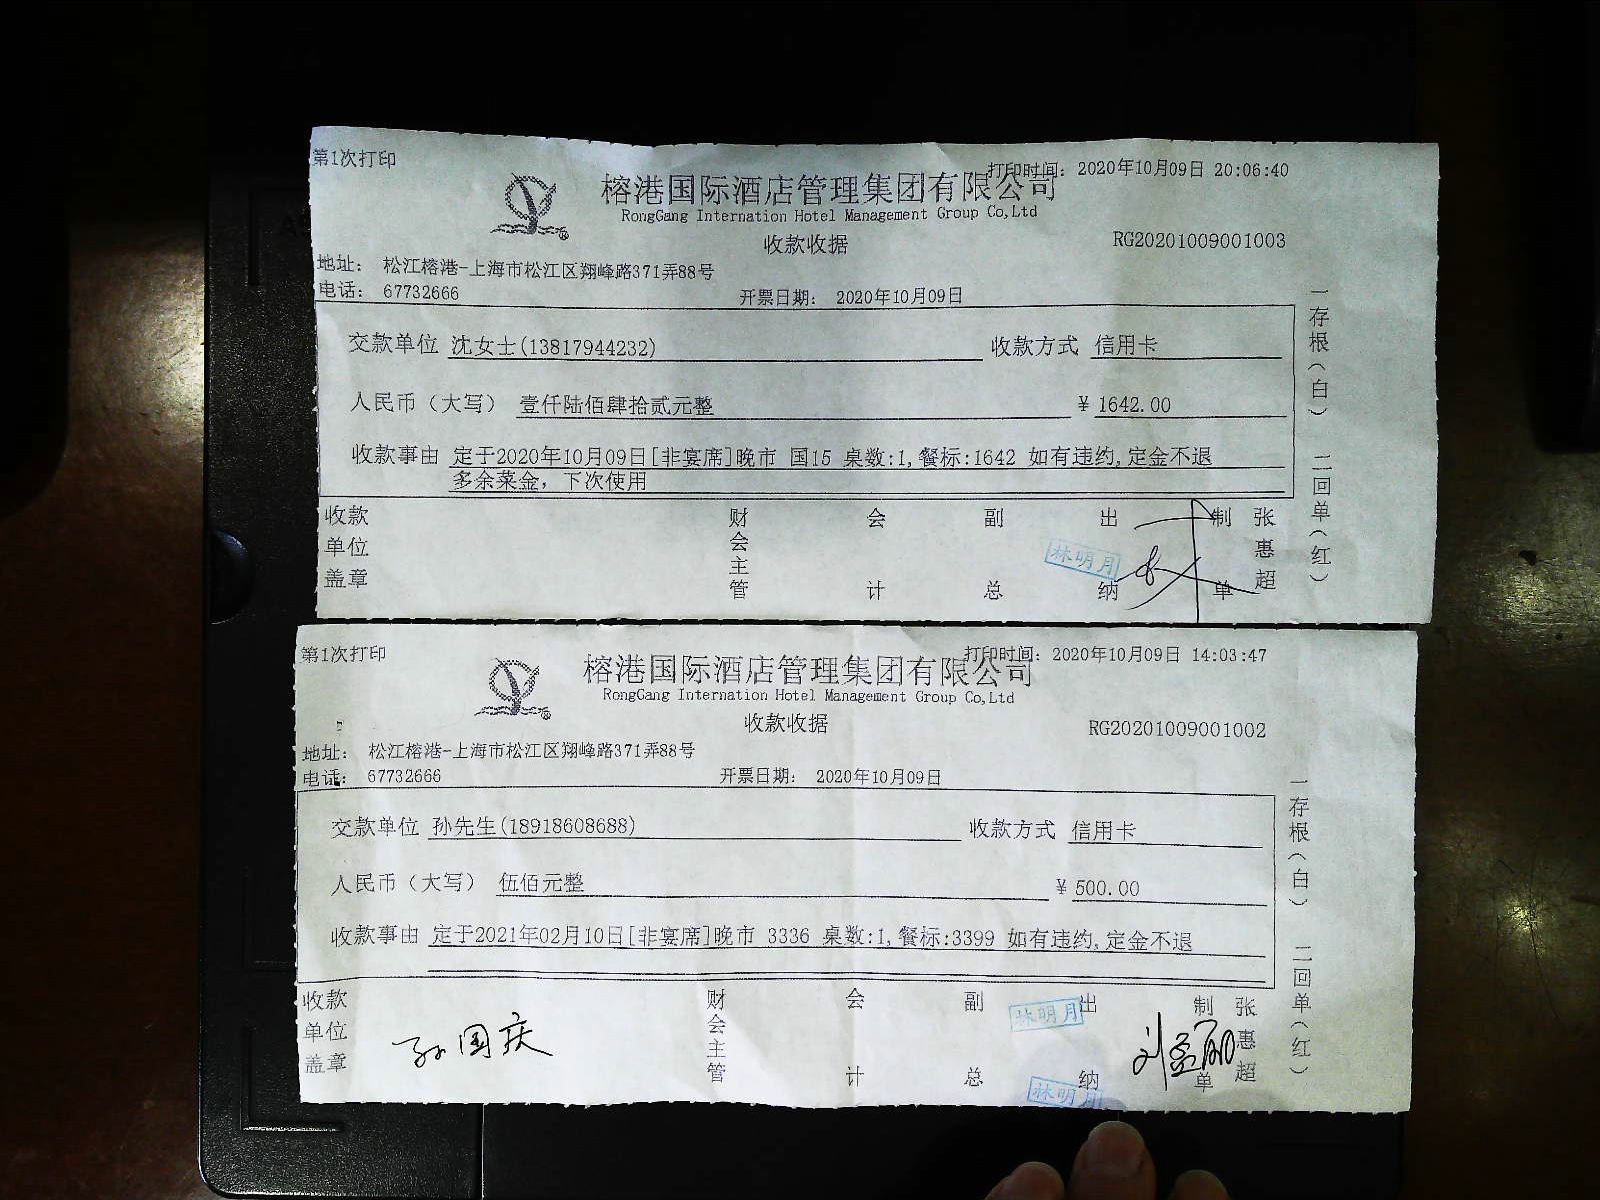 第1次打印
打印时间: 2020年10月09日 20:06:40
榕港国际酒店管理集团有限公司
RongGang Internation Hotel Management Group Co,Ltd
收款收据
RG20201009001003
地址: 松江榕港-上海市松江区翔峰路371弄88号
电话: 67732666
开票日期: 2020年10月09日
交款单位 沈女士(13817944232) 收款方式 信用卡
人民币（大写） 壹仟陆佰肆拾贰元整 ¥ 1642.00
收款事由 定于2020年10月09日[非宴席]晚市 国15 桌数:1,餐标:1642 如有违约,定金不退
多余菜金，下次使用
收款单位盖章 财会主管 会计 副总 出纳 制单 张惠超
林明月
一存根（白） 二回单（红）
第1次打印
打印时间: 2020年10月09日 14:03:47
榕港国际酒店管理集团有限公司
RongGang Internation Hotel Management Group Co,Ltd
收款收据
RG20201009001002
地址: 松江榕港-上海市松江区翔峰路371弄88号
电话: 67732666
开票日期: 2020年10月09日
交款单位 孙先生(18918608688) 收款方式 信用卡
人民币（大写） 伍佰元整 ¥ 500.00
收款事由 定于2021年02月10日[非宴席]晚市 3336 桌数:1,餐标:3399 如有违约,定金不退
收款单位盖章 孙国庆 财会主管 会计 副总 出纳 制单 张惠超
林明月
林明月
一存根（白） 二回单（红）